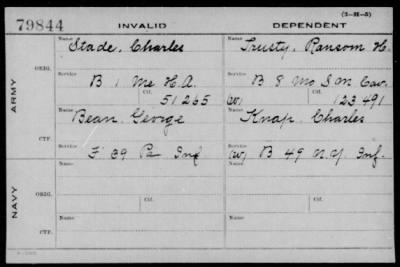 (3-H-5)
79844 INVALID DEPENDENT
Name Name
Stade, Charles Trusty, Ransom H.
ORIG.
Service Service
B 1 Me H.A. B 8 Mo S M Cav.
Ctf. Ctf.
51265 (W) 123491
ARMY
Name Name
Bean, George Knap, Charles
CTF.
Service Service
F 69 Pa Inf (W) B 49 N.Y. Inf.
Name Name
ORIG.
NAVY
Name Name
CTF.